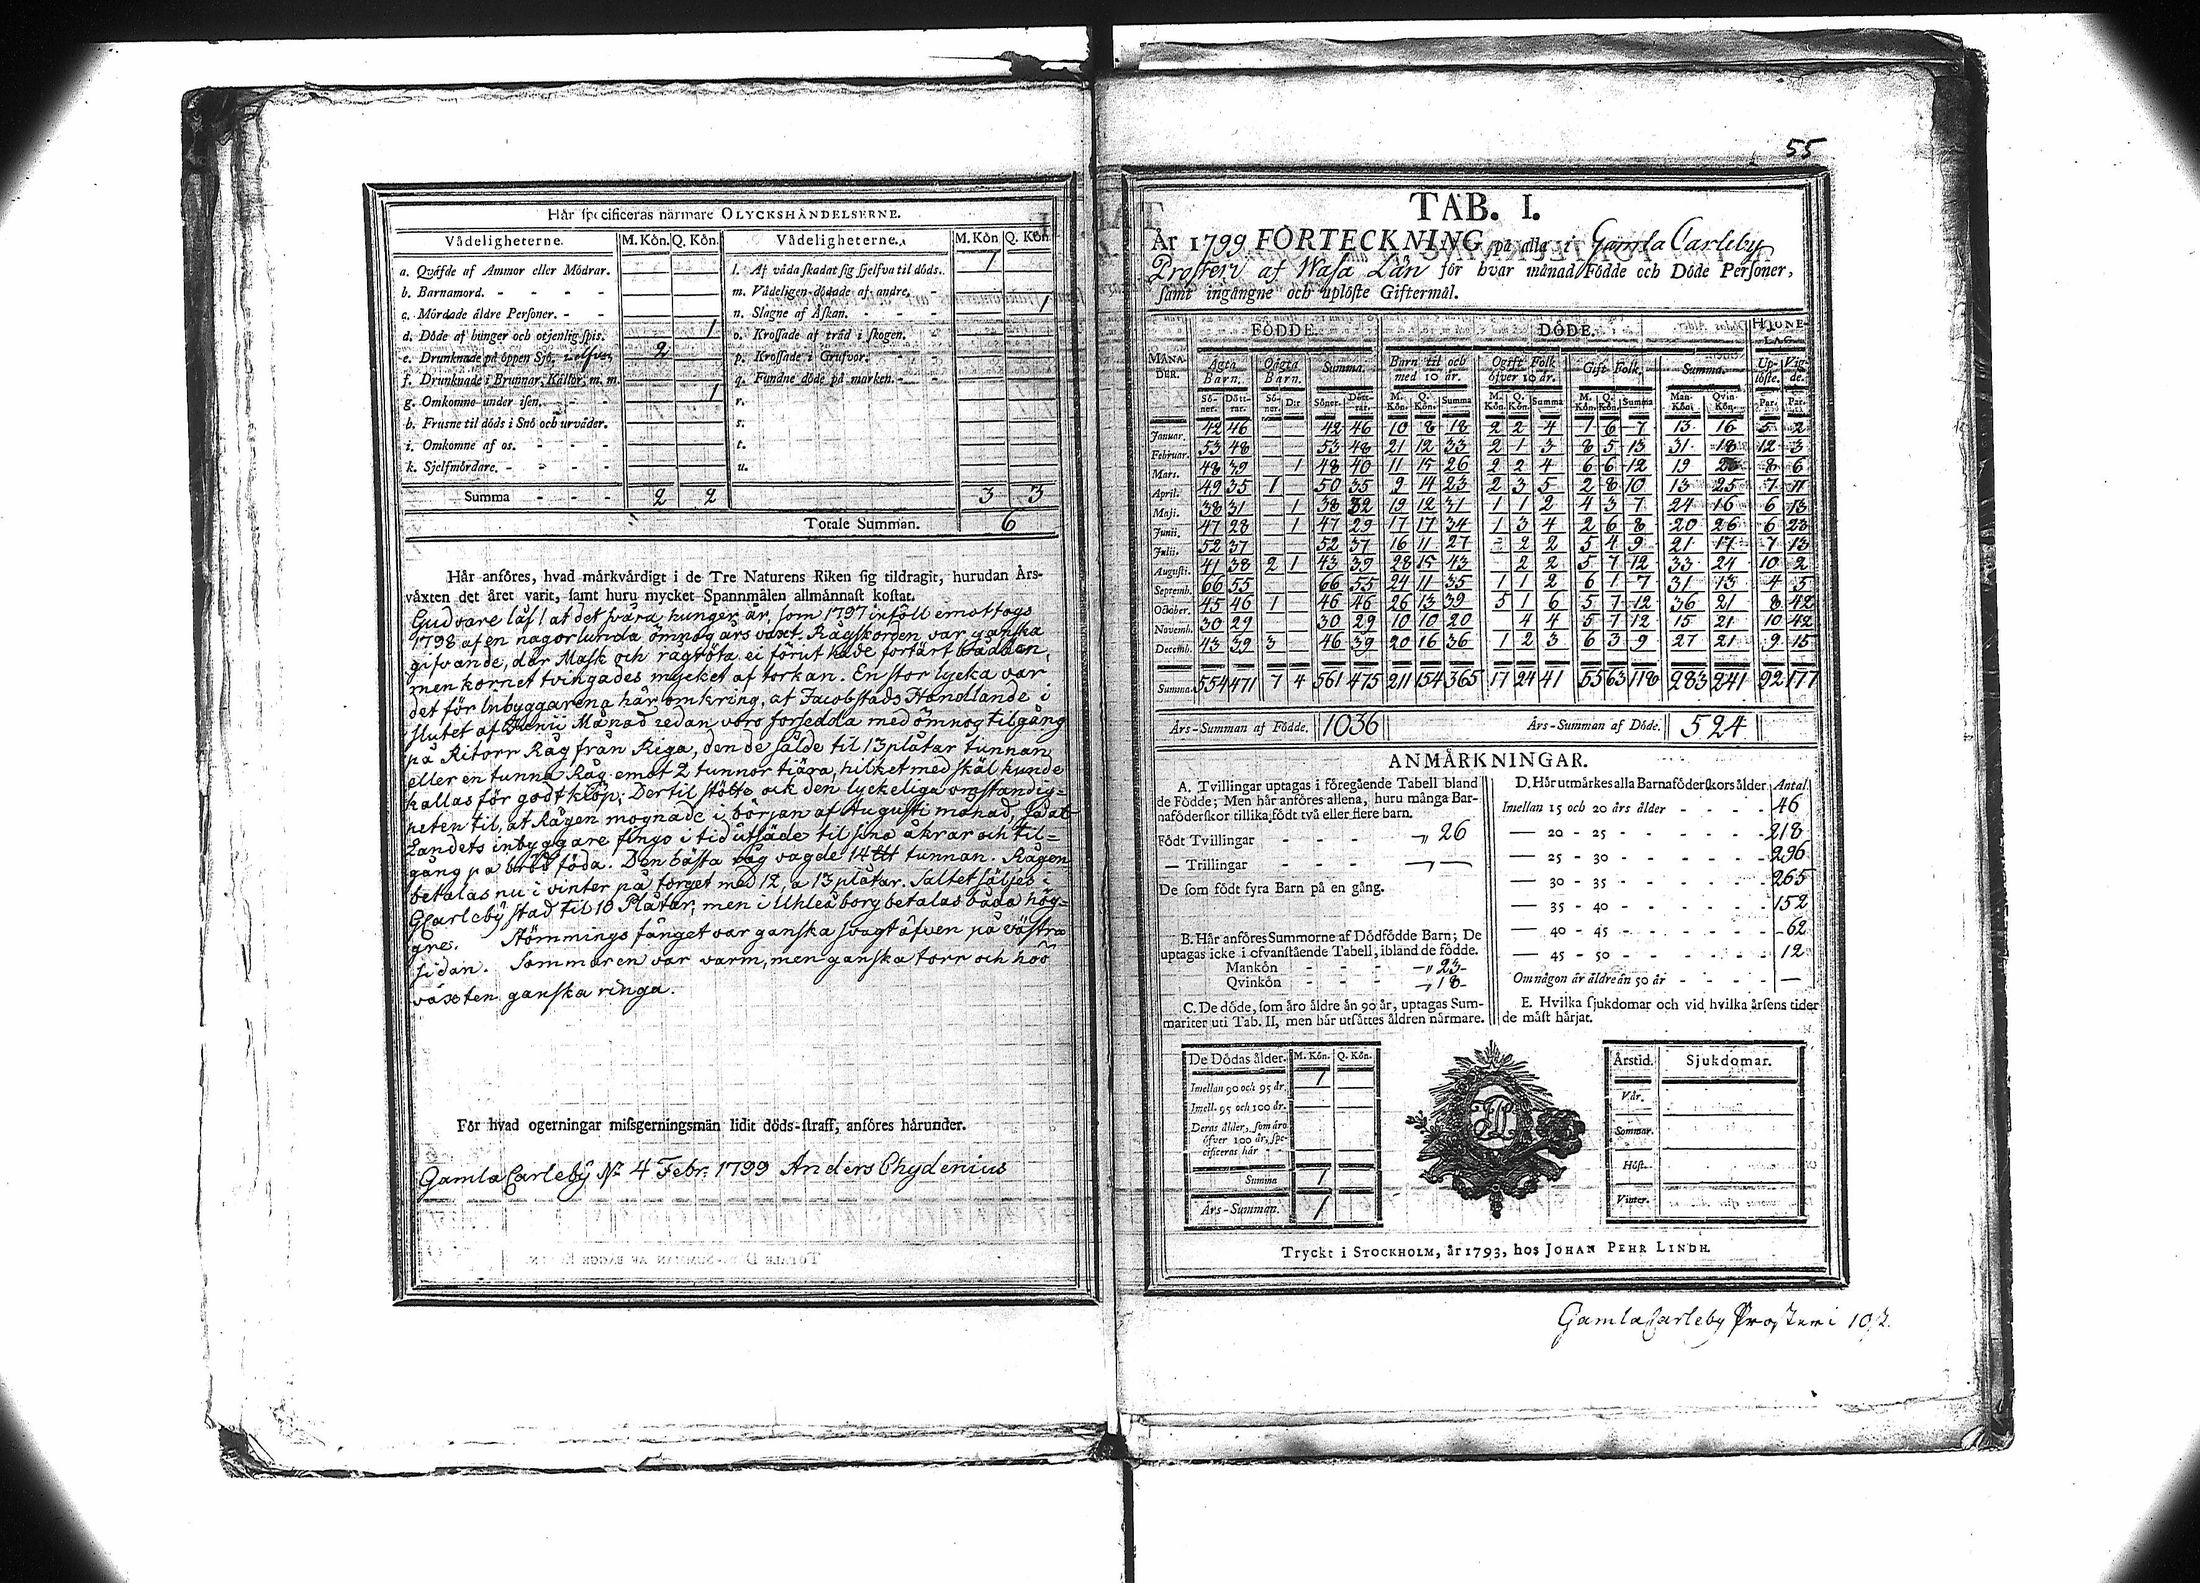 Här specificeras närmare OLYCKSHÄNDELSERNE.
Vådeligheterne. M. Kön. Q. Kön. Vådeligheterne. M. Kön Q. Kön
a. Qväfde af Ammor eller Mödrar. l. Af våda skadat sig sjelfva til döds. 1
b. Barnamord. - - - - m. Vådeligen dödade af andre. - 1
c. Mördade äldre Personer. - - n. Slagne af Åskan. - - -
d. Döde af hunger och otjenlig spis. 1 o. Krossade af träd i skogen. -
e. Drunknade på öppen Sjö, i elfver 2 p. Krossade i Grufvor. -
f. Drunknade i Brunnar, Källor, m. m. q. Fundne döde på marken. - -
g. Omkomne under isen. - - 1 r.
h. Frusne til döds i Snö och urväder. s.
i. Omkomne af os. - - - t.
k. Sjelfmördare. - - - - u.
Summa - - - 2 2 3 3
Totale Summan. 6
Här anföres, hvad märkvärdigt i de Tre Naturens Riken sig tildragit, hurudan Års-
växten det året varit, samt huru mycket Spannmålen allmännast kostat.
Gud vare låf! at det svåra hunger år, som 1797 inföll emottogs
1798 af en någorlunda ömnog års växt. Rågskorden var ganska
gifvande, där Mask och rågröta ei förut hade förtärt brådden,
men kornet tvingades mycket af torkan. En stor lycka var
det för Inbyggarena här omkring, at Jacobstads Handlande i
slutet af Junii Månad redan voro försedda med ömnog tilgång
på Ritorr Råg från Riga, den de sålde til 13 plåtar tunnan
eller en tunna Råg emot 2 tunnor tiära, hilket med skäl kunde
kallas för godt köp; Dertil stötte ock den lyckeliga omständig=
heten til, at Rågen mognade i början af Augusti månad, så at
Landets inbyggare fingo i tid utsäde til sina åkrar och til=
gång på bröd föda. Den bästa råg vägde 14 ltt tunnan. Rågen
betalas nu i vinter på torget med 12, a 13 plåtar. Saltet säljes i
GCarleby stad til 10 Plåtar, men i Uhleåborg betalas båda hög=
gre. Strömmings fånget var ganska svagt äfven på västra
sidan. Sommaren var varm, men ganska torr och höö
växten ganska ringa.
För hvad ogerningar missgerningsmän lidit döds-straff, anföres härunder.
Gamla Carleby 4 Febr. 1799 Anders Chydenius
55
TAB. I.
År 1799 FÖRTECKNING på alla i Gamla Carleby
Prosteri af Wasa Län för hvar månad Födde och Döde Personer,
samt ingångne och uplöste Giftermål.
FÖDDE. DÖDE. HJONE-LAG.
MÅNADER. Ägta Barn. Oägta Barn. Summa. Barn til och med 10 år. Ogift Folk öfver 10 år. Gift Folk. Summa. Uplöste. Vigde.
Söner. Döttrar. Söner. Dtr Söner. Döttrar. M. Kön. Q. Kön. Summa M. Kön. Q. Kön. Summa M. Kön. Q. Kön. Summa Man-Kön. Qvin-Kön. Par. Par.
Januar. 42 46 42 46 10 8 18 2 2 4 1 6 7 13 16 5 2
Februar. 53 48 53 48 21 12 33 2 1 3 8 5 13 31 18 12 3
Mars. 48 39 1 48 40 11 15 26 2 2 4 6 6 12 19 8 6
April. 49 35 1 50 35 9 14 23 2 3 5 2 8 10 13 25 7 11
Maji. 38 31 1 38 32 19 12 31 1 1 2 4 3 7 24 16 6 13
Junii. 47 28 1 47 29 17 17 34 1 3 4 2 6 8 20 26 6 23
Julii. 52 37 52 37 16 11 27 - 2 2 5 4 9 21 17 7 13
Augusti. 41 38 2 1 43 39 28 15 43 2 2 5 7 12 33 24 10 2
Septemb. 66 55 66 55 24 11 35 1 1 2 6 1 7 31 13 4 5
October. 45 46 1 46 46 26 13 39 5 1 6 5 7 12 36 21 8 42
Novemb. 30 29 30 29 10 10 20 4 4 5 7 12 15 21 10 42
Decemb. 43 39 3 46 39 20 16 36 1 2 3 6 3 9 27 21 9 15
Summa. 554 471 7 4 561 475 211 154 365 17 24 41 55 63 118 283 241 92 177
Års-Summan af Födde. 1036 Års-Summan af Döde. 524
ANMÄRKNINGAR.
A. Tvillingar uptagas i föregående Tabell bland
de Födde; Men här anföres allena, huru många Bar-
naföderskor tillika födt två eller flere barn.
Födt Tvillingar - - - - " 26
— Trillingar - - -
De som födt fyra Barn på en gång.
B. Här anföres Summorne af Dödfödde Barn; De
uptagas icke i ofvanstående Tabell, ibland de födde.
Mankön - - - - " 23-
Qvinkön - - - - " 18-
C. De döde, som äro äldre än 90 år, uptagas Sum-
mariter uti Tab. II, men här utsättes åldren närmare.
D. Här utmärkes alla Barnaföderskors ålder. Antal
Imellan 15 och 20 års ålder - - - 46
— 20 - 25 - - - - - 218
— 25 - 30 - - - - - 296
— 30 - 35 - - - - - 265
— 35 - 40 - - - - - 152
— 40 - 45 - - - - - 62
— 45 - 50 - - - - - 12
Om någon är äldre än 50 år - - - —
E. Hvilka sjukdomar och vid hvilka årsens tider
de mäst härjat.
De Dödas ålder. M. Kön. Q. Kön.
Imellan 90 och 95 år. 1
Imell. 95 och 100 år.
Deras ålder, som äro
öfver 100 år, spe-
cificeras här - -
Summa 1
Års-Summan. 1
Årstid. Sjukdomar.
Vår.
Sommar.
Höst.
Vinter.
Tryckt i STOCKHOLM, år 1793, hos JOHAN PEHR LINDH.
Gamla Carleby Prosteri